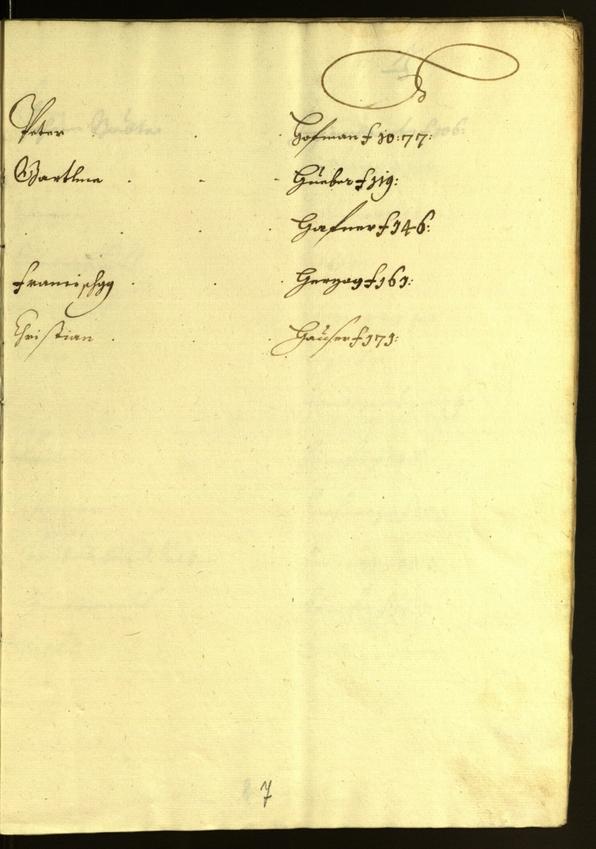 H
Peter . . Hofman f 10: 77:
Bartlme . . . Hueber f 119:
. . Hafner f 146:
Francischgg . . . Herzog f 161:
Christian . . Hauser f 171:
7